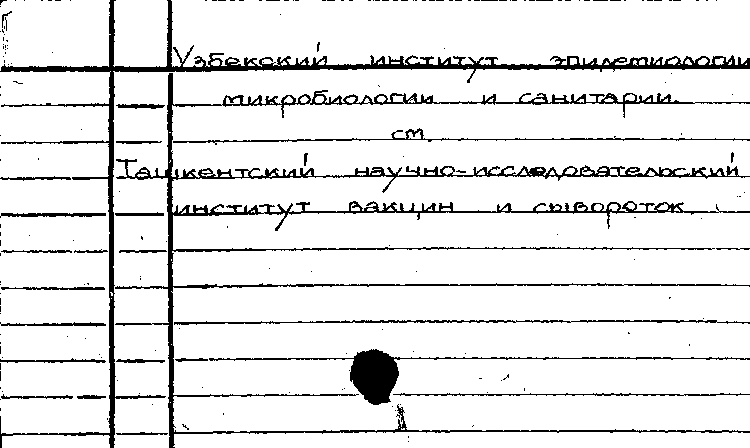 Узбекский институт эпидемиологии
микробиологии и санитарии.
см.
Ташкентский научно-исследовательский
институт вакцин и сывороток.